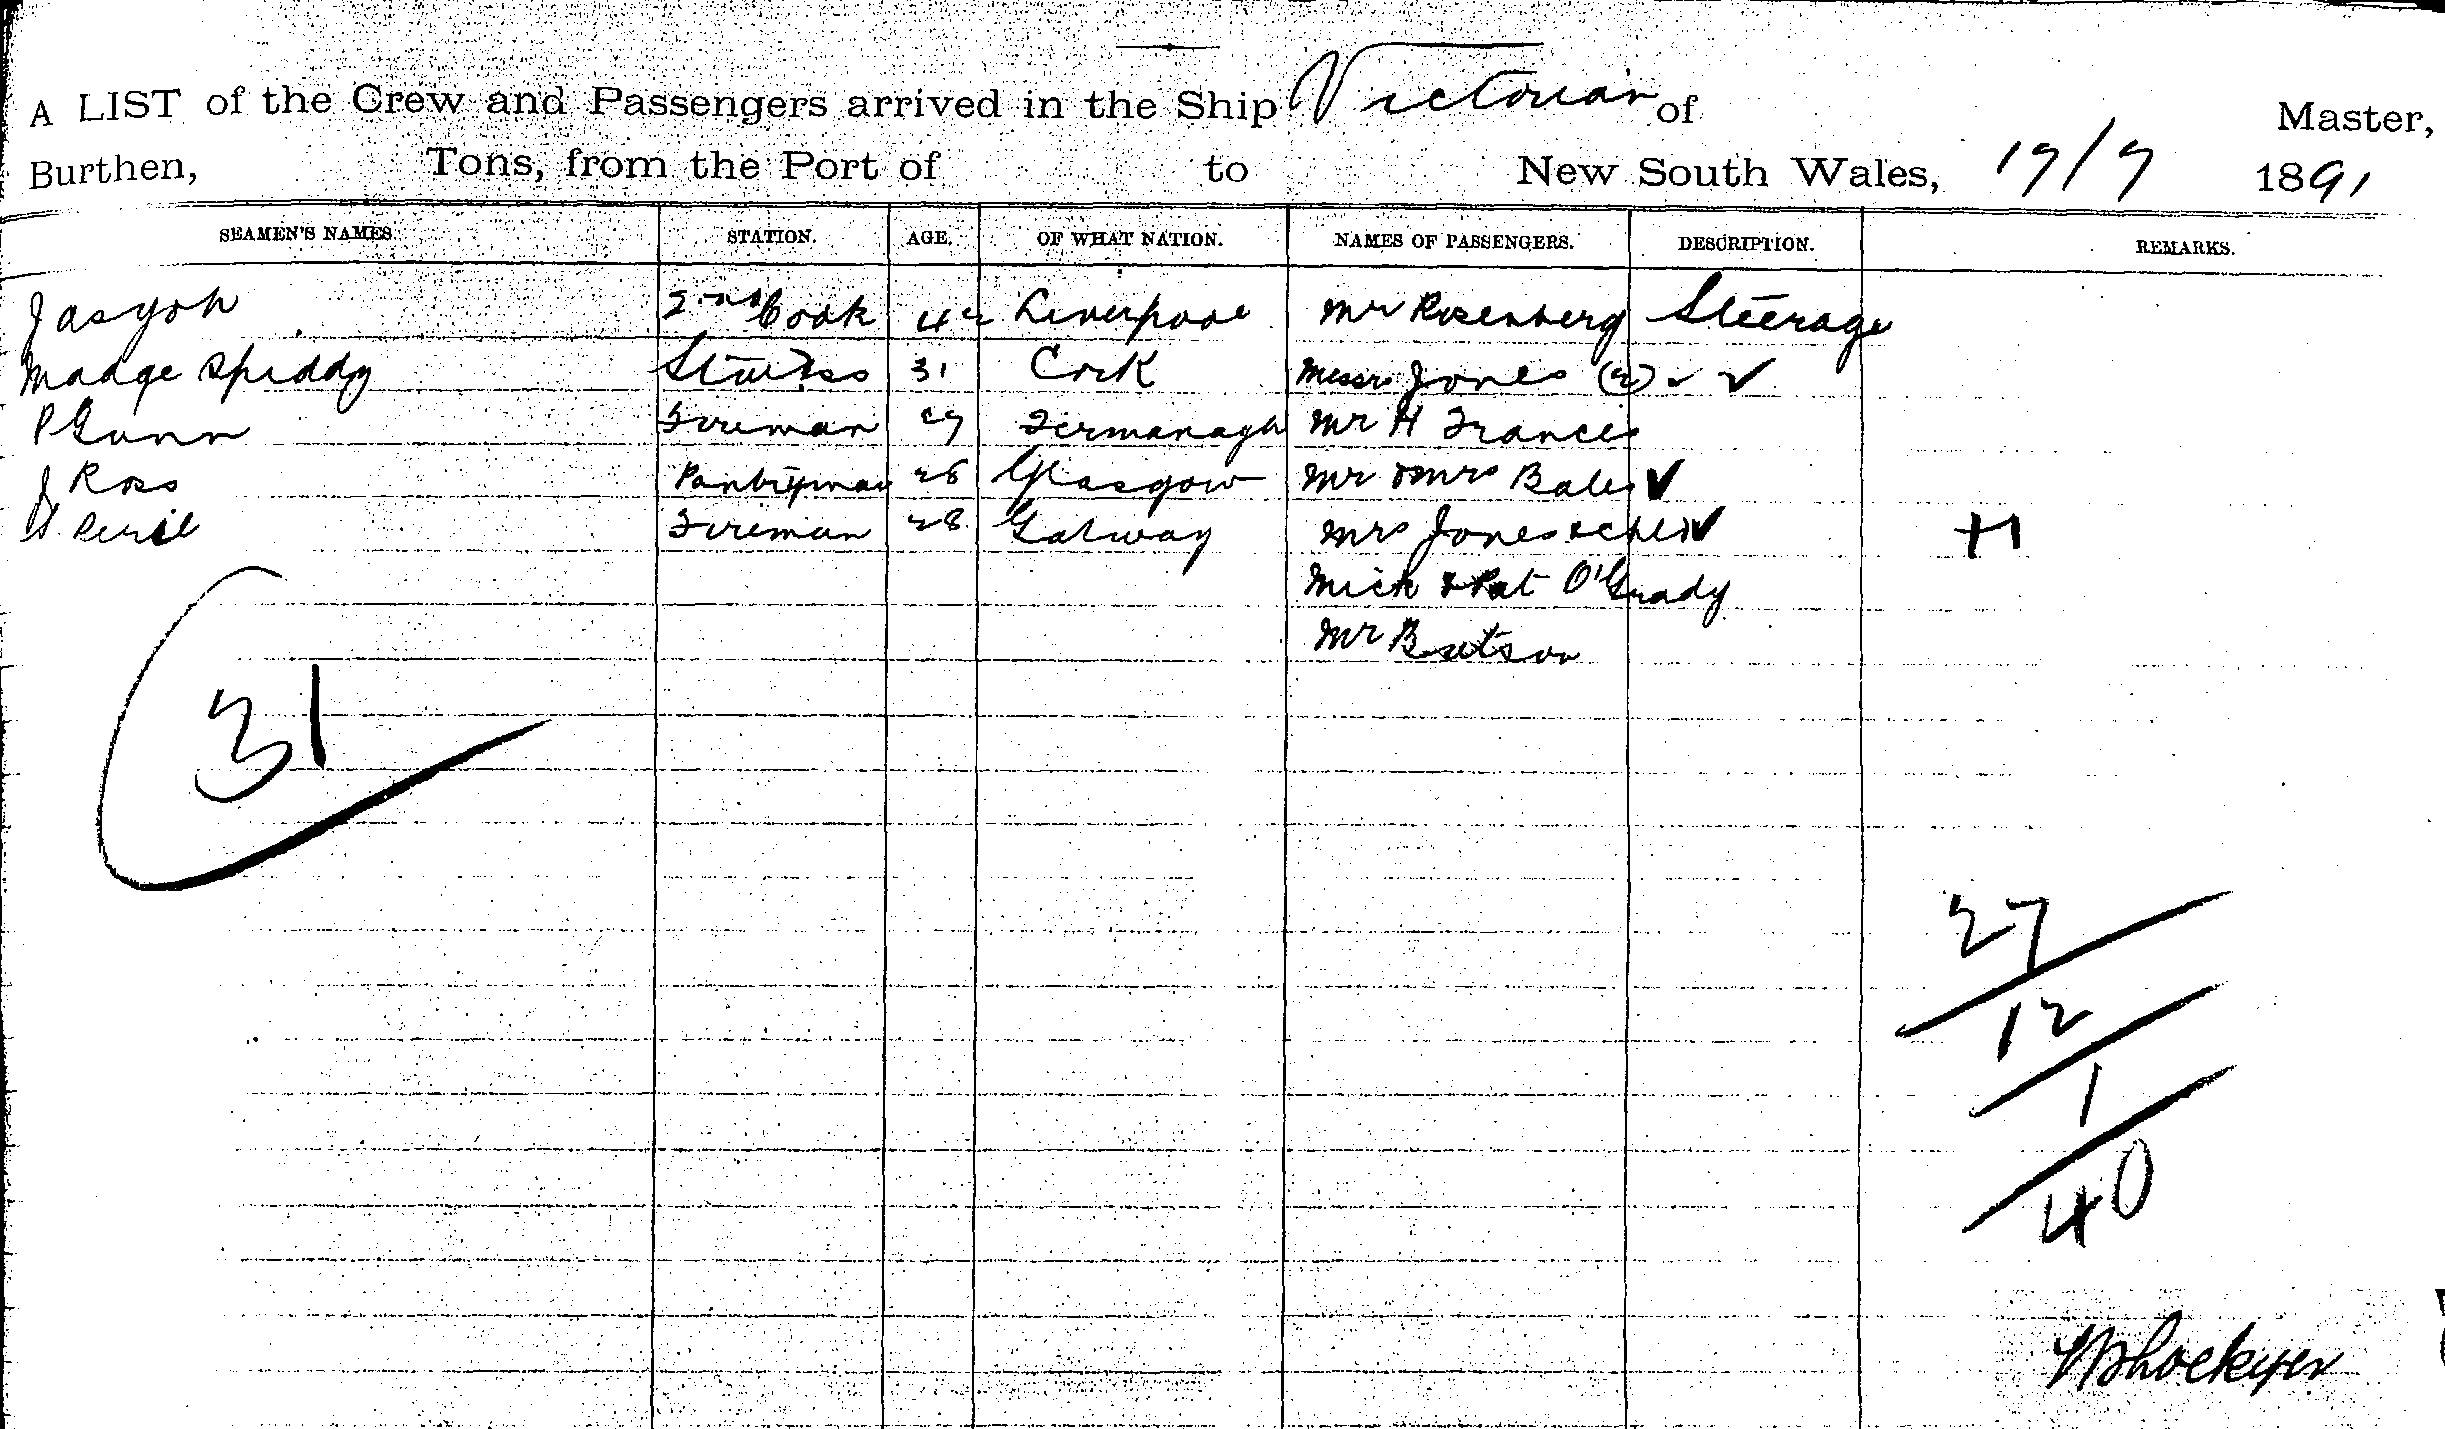 A LIST of the Crew and Passengers arrived in the Ship Victorian of Master,
Burthen, Tons, from the Port of to New South Wales, 19/9 1891
SEAMEN'S NAMES STATION. AGE. OF WHAT NATION. NAMES OF PASSENGERS. DESCRIPTION. REMARKS.
2nd Cook 42 Liverpool Mr Rosenberg Steerage
Madge Spiddy 31 Cork Messrs Jones (2)
P Gunn Fireman 29 Fermanagh Mr H Frances
J Ross Pantryman 26 Glasgow Mr & Mrs Bales
Fireman 28 Galway Mrs Jones & +1
Mick & Pat O'Grady
Mr Butson
31
27
12
1
40